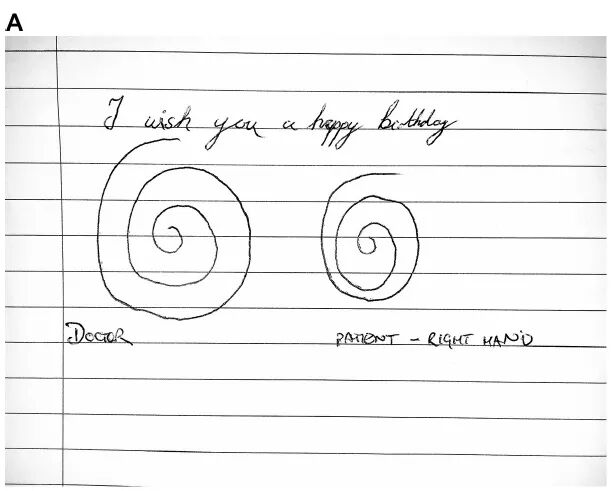 A
I wish you a happy birthday
DOCTOR
PATIENT - RIGHT HAND